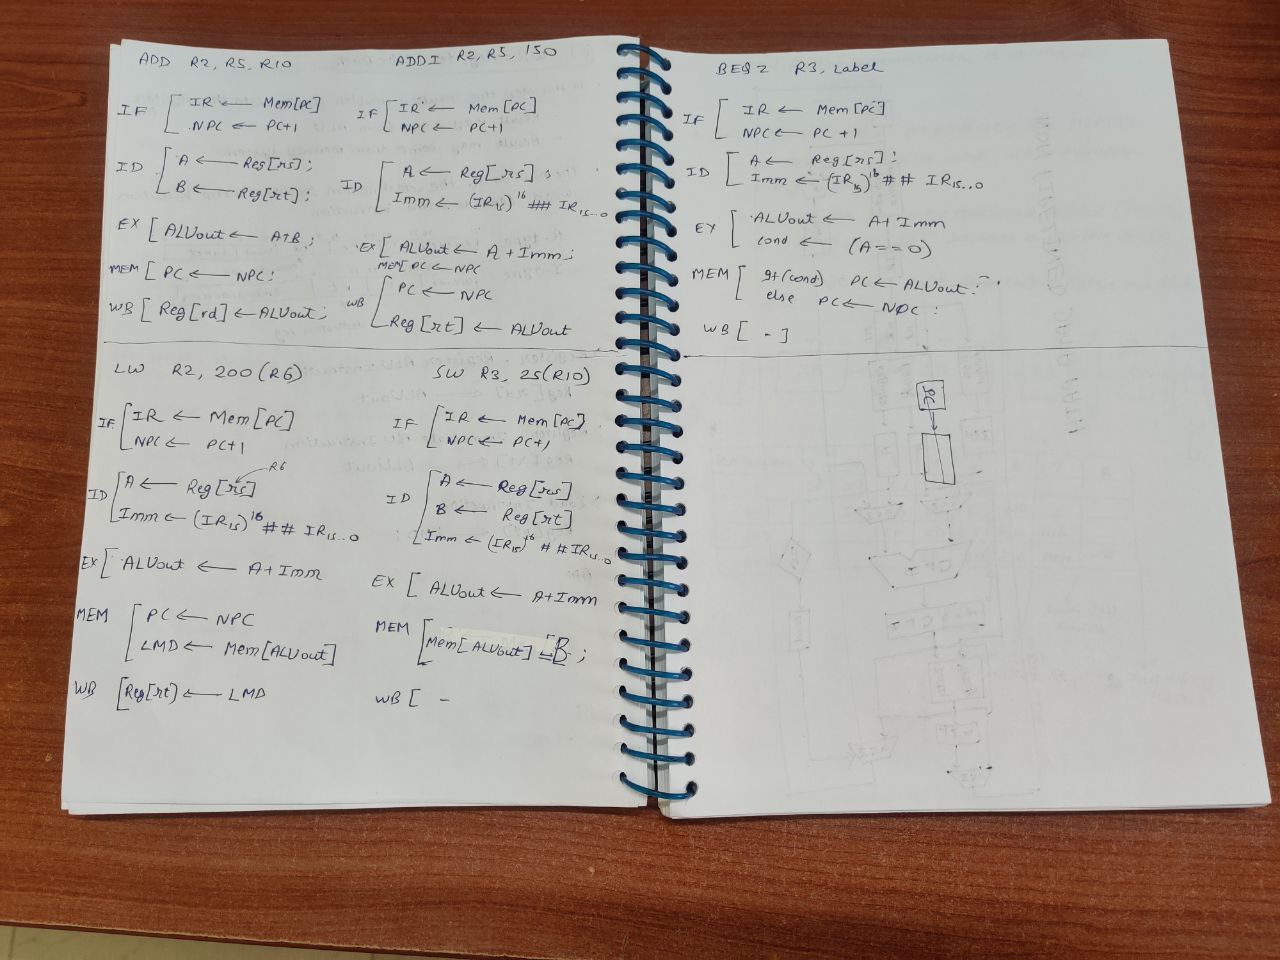 ADD R2, R5, R10
IF [ IR ← Mem[PC]
NPC ← PC+1
ID [ A ← Reg[rs];
B ← Reg[rt];
EX [ ALUout ← A+B;
MEM [ PC ← NPC;
WB [ Reg[rd] ← ALUout;
ADDI R2, R5, 150
IF [ IR ← Mem[PC]
NPC ← PC+1
ID [ A ← Reg[rs];
Imm ← (IR15)^16 ## IR15...0
EX [ ALUout ← A + Imm;
MEM [ PC ← NPC
WB [ PC ← NPC
Reg[rt] ← ALUout
LW R2, 200(R6)
IF [ IR ← Mem[PC]
NPC ← PC+1
R6
ID [ A ← Reg[rs]
Imm ← (IR15)^16 ## IR15...0
EX [ ALUout ← A+Imm
MEM [ PC ← NPC
LMD ← Mem[ALUout]
WB [ Reg[rt] ← LMD
SW R3, 25(R10)
IF [ IR ← Mem[PC]
NPC ← PC+1
ID [ A ← Reg[rs]
B ← Reg[rt]
Imm ← (IR15)^16 ## IR15...0
EX [ ALUout ← A+Imm
MEM [ Mem[ALUout] ← B;
WB [ -
BEQZ R3, Label
IF [ IR ← Mem[PC]
NPC ← PC+1
ID [ A ← Reg[rs];
Imm ← (IR15)^16 ## IR15...0
EX [ ALUout ← A+Imm
cond ← (A==0)
MEM [ If(cond) PC ← ALUout;
else PC ← NPC;
WB [ - ]
PC